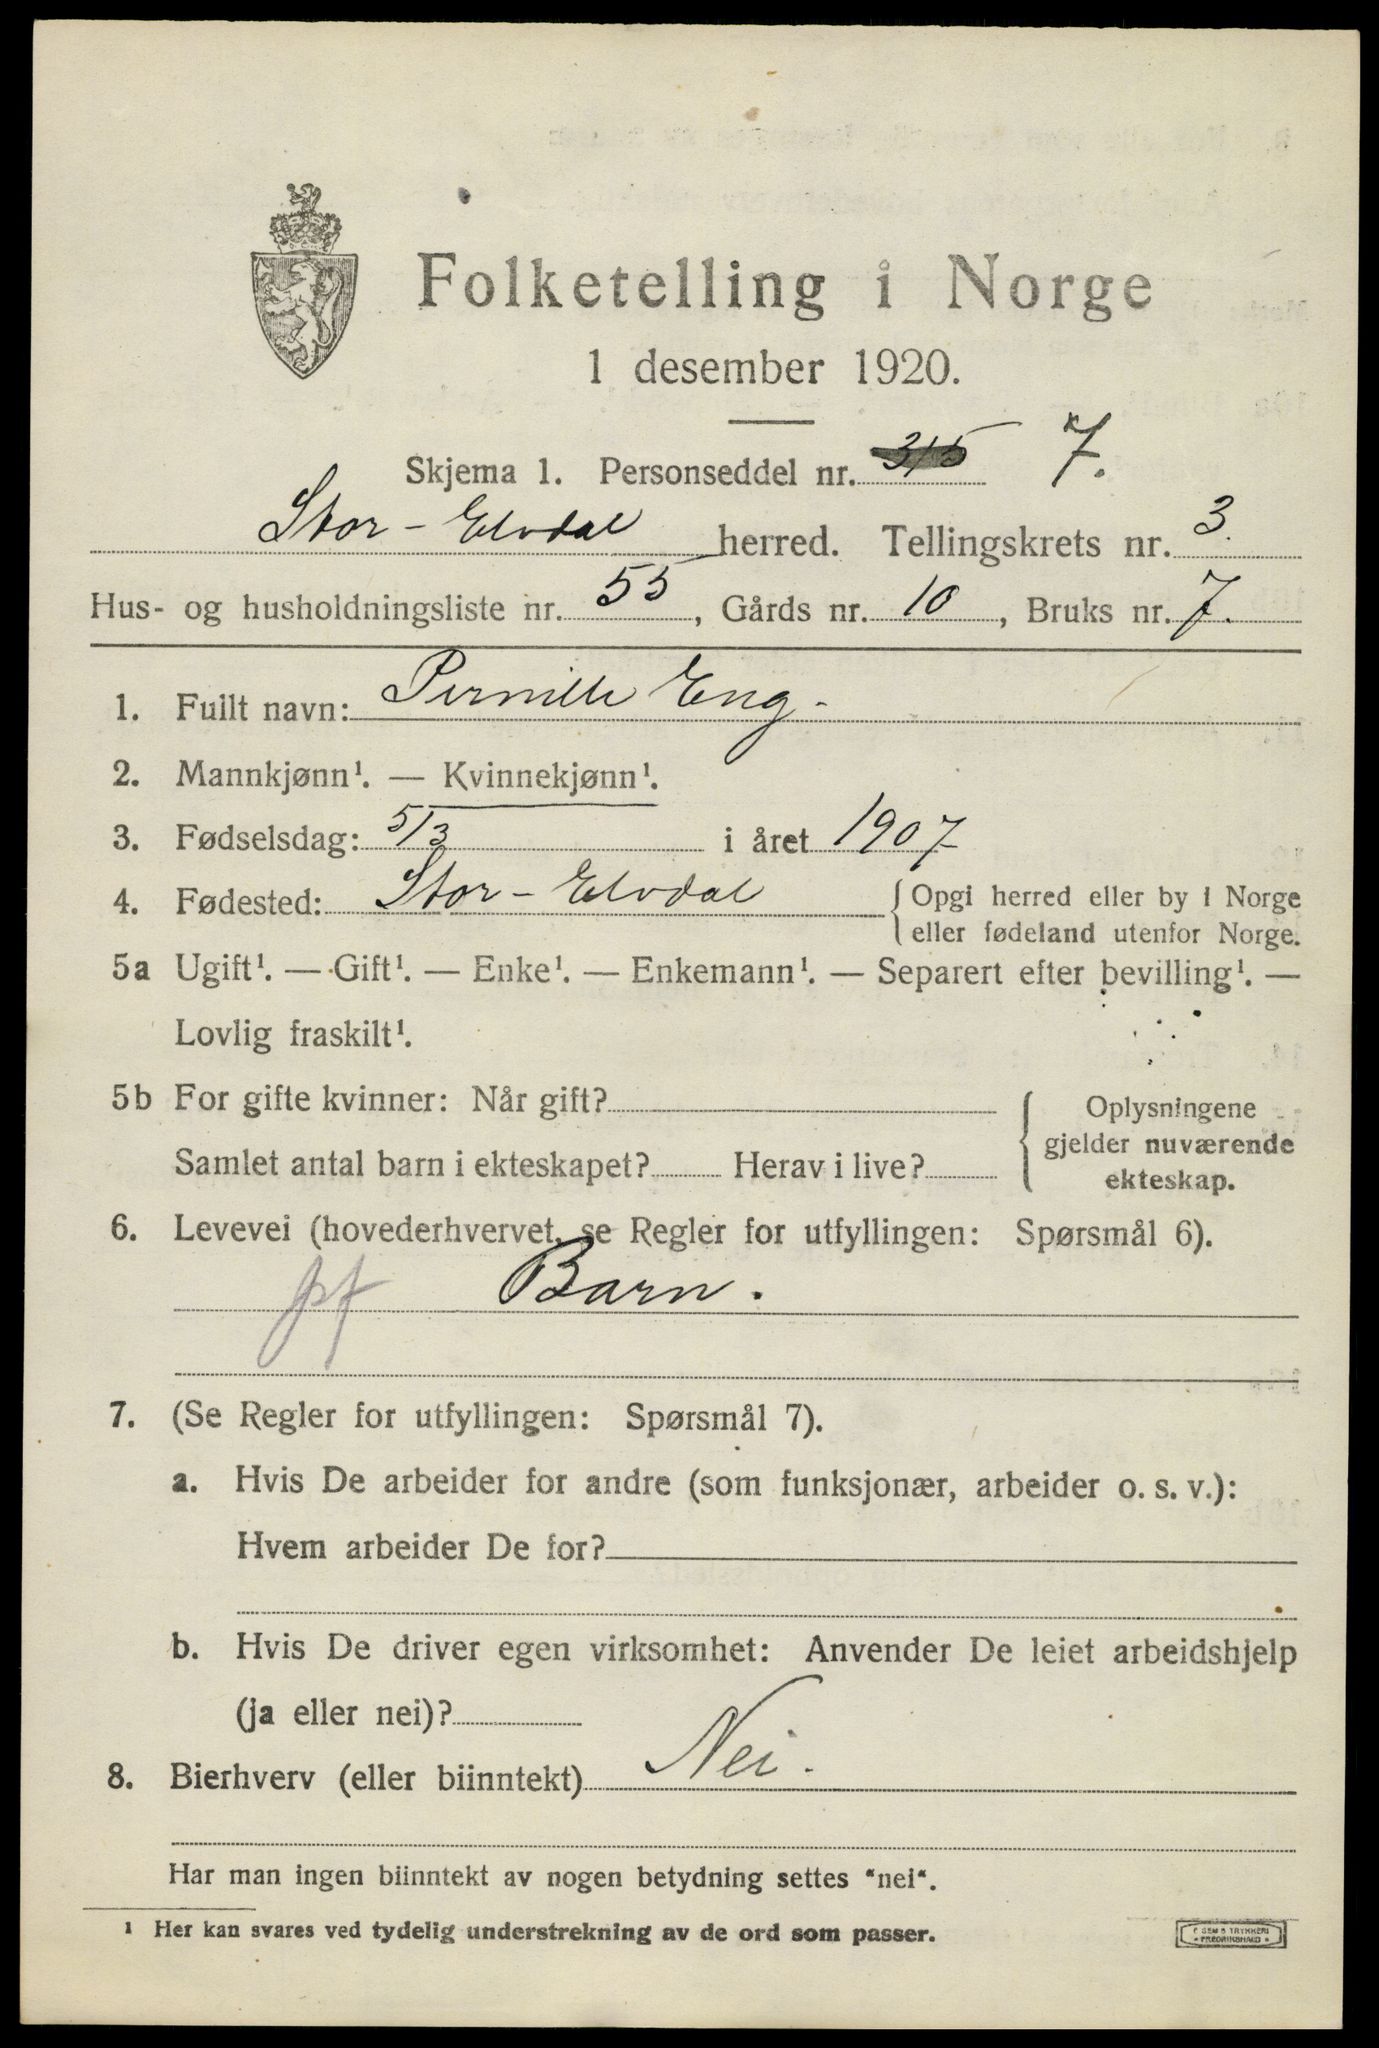 Folketelling i Norge
1 desember 1920.
Skjema 1. Personseddel nr. 315 7.
Stor-Elvdal herred. Tellingskrets nr. 3.
Hus- og husholdningsliste nr. 55, Gårds nr. 10, Bruks nr. 7.
1. Fullt navn: Pernille Eng.
2. Mannkjønn¹. — Kvinnekjønn¹.
3. Fødselsdag: 5/3 i året 1907
4. Fødested: Stor-Elvdal { Opgi herred eller by i Norge
eller fødeland utenfor Norge.
5a Ugift¹. — Gift¹. — Enke¹. — Enkemann¹. — Separert efter bevilling¹. —
Lovlig fraskilt¹.
5b For gifte kvinner: Når gift? { Oplysningene
gjelder nuværende
Samlet antal barn i ekteskapet? Herav i live? ekteskap.
6. Levevei (hovederhvervet, se Regler for utfyllingen: Spørsmål 6).
pf Barn.
7. (Se Regler for utfyllingen: Spørsmål 7).
a. Hvis De arbeider for andre (som funksjonær, arbeider o. s. v.):
Hvem arbeider De for?
b. Hvis De driver egen virksomhet: Anvender De leiet arbeidshjelp
(ja eller nei)?
8. Bierhverv (eller biinntekt) Nei.
Har man ingen biinntekt av nogen betydning settes "nei".
¹ Her kan svares ved tydelig understrekning av de ord som passer.
TRYKKERI
FREDRIKSHALD